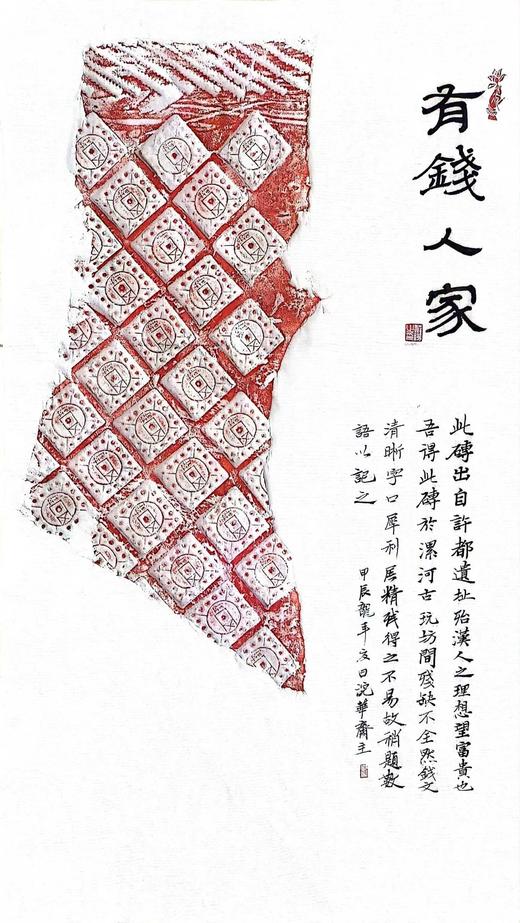 有錢人家
此磚出自許都遺址殆漢人之理想望富貴也
吾得此磚於漯河古玩坊間殘缺不全然錢文
清晰字口犀利居精殘得之不易故稍題數
語以記之
甲辰龍年亥日浣華齋主